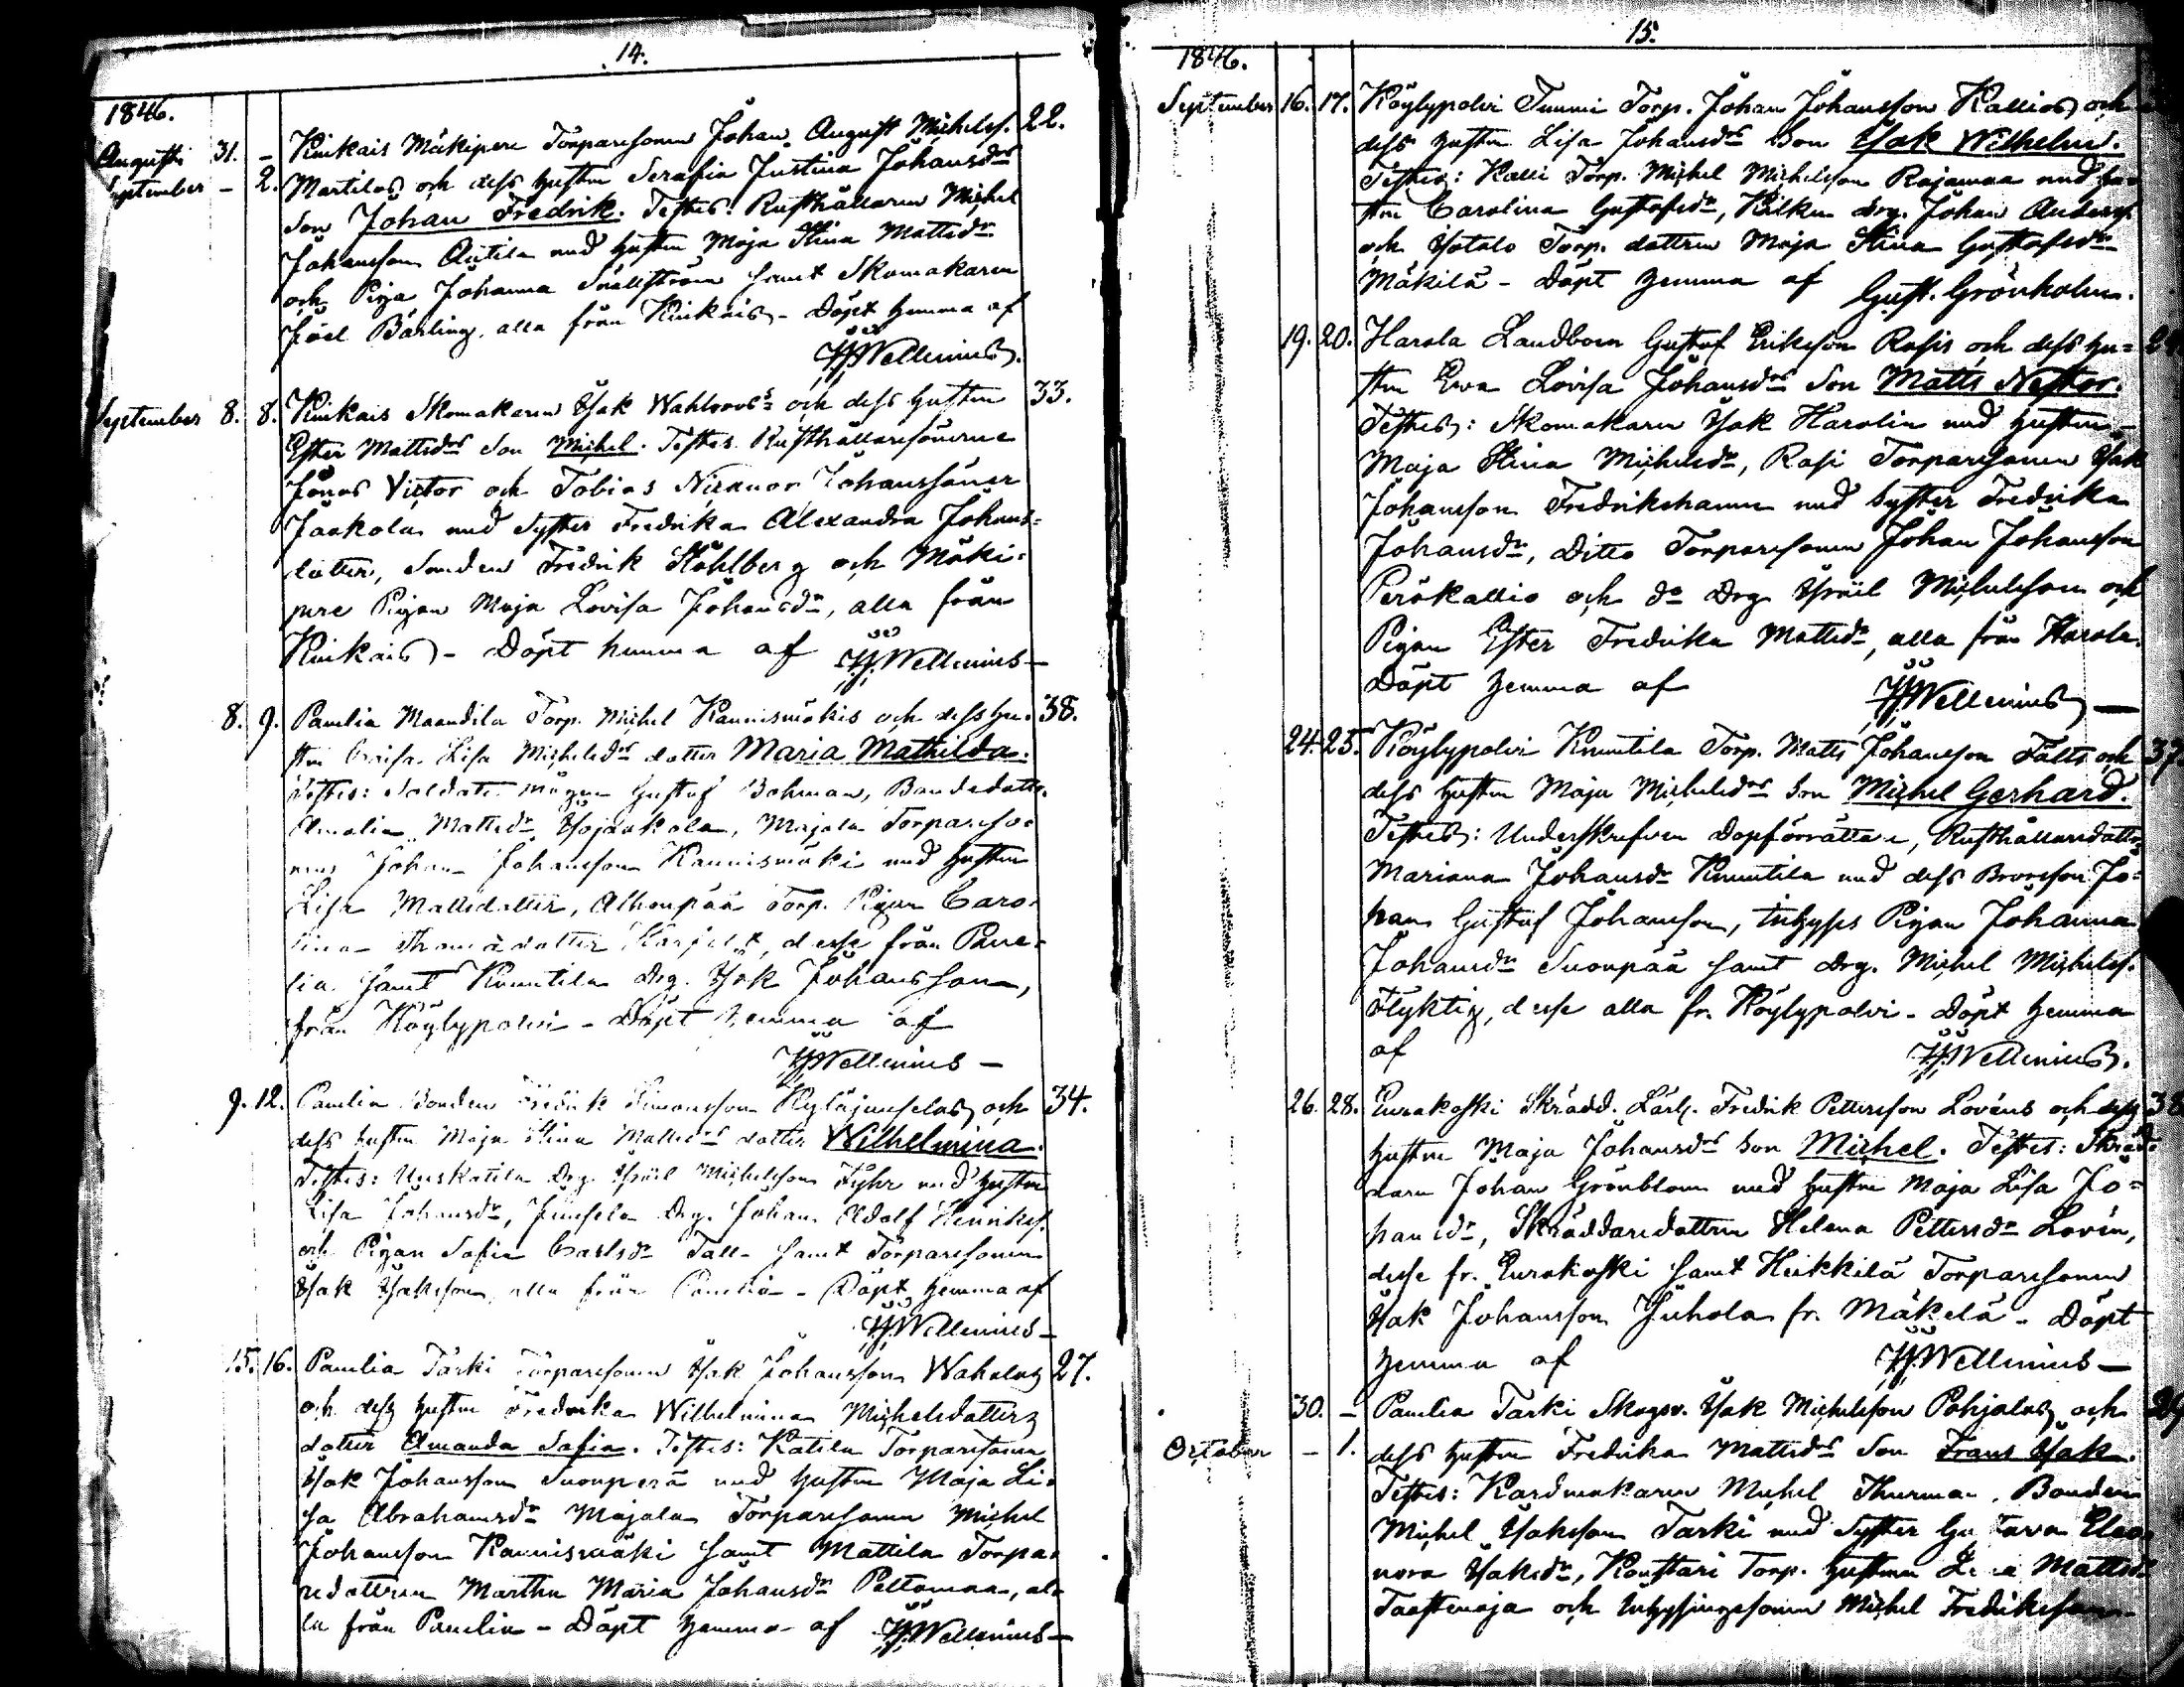 14.
1846.
Augusti 31. - Kiukais Mäkipere Torparesonen Johan August Michelss. 22.
September - 2. Martilas och dess hustru Serafia Justina Johansdrs
Son Johan Fredrik. Testes: Rusthållaren Michel
Johansson Antila med hustru Maja Stina Mattsdr
och Piga Johanna Snällström samt Skomakaren
Joel Bärling, alla från Kiukais - Döpt hemma af
Wellenius.
September 8. 8. Kiukais Skomakaren Isak Wahlroos's och dess hustru 33.
Ester Mattsdrs Son Michel. Testes. Rusthållaresönerne
Jonas Victor och Tobias Nicanor Johanssöner
Jaakola med Syster Fredrika Alexandra Johans=
dotter, Smeden Fredrik Ståhlberg och Mäki=
pere Pigan Maja Lovisa Johansdr, alla från
Kiukais - Döpt hemma af Wellenius -
8. 9. Panelia Maandila Torp. Michel Kaunismäkis och dess hu- 38.
stru Lisa Michelsdrs dotter Maria Mathilda.
Testes: Soldate mågen Gustaf Bohman, Bondedottr.
Amalia Mattsdr Isojaakola, Majala Torpareso-
nen Johan Johansson Kaunismäki med hustru
Lisa Mattsdotter, Alhonpää Torp. Pigan Caro-
lina Thomasdotter, desse från Pane-
lia samt Knuutila Drg. Isak Johansson,
från Köylypolvi - Döpt hemma af
Wellenius -
9. 12. Panelia Bonden Fredrik Simonsson Kyläjunselas och 34.
dess hustru Maja Stina Mattsdrs dotter Wilhelmina.
Testes: Uuskatila Drg. Israel Michelsson Fyhr med hustru
Lisa Johansdr, Junsela Drg. Johan Adolf Henrikss.
och Pigan Sofia Carlsdr Tall samt Torparesonen
Isak Isaksson, alla från Panelia - Döpt hemma af
Wellenius -
15. 16. Panelia Tarki Torparesonen Isak Johansson Wahalas 27.
och dess hustru Fredrika Wilhelmina Michelsdotters
dotter Amanda Sofia. Testes: Katila Torparesonen
Isak Johansson Suonperä med hustru Maja Li-
sa Abrahamsdr Majala Torparesonen Michel
Johansson Kaunismäki samt Mattila Torpa-
redottren Martha Maria Johansdr Peltomaa, al-
la från Panelia - Döpt hemma af Wellenius -
15.
1846.
September 16. 17. Köylypolvi Tummi Torp. Johan Johansson Kallios och
dess hustru Lisa Johansdrs Son Isak Wilhelm.
Testes: Kalli Torp. Michel Michelsson Rajamaa med hu-
stru Carolina Gustafsdr, Kilku Drg. Johan Anderss.
och Isotalo Torp. dottren Maja Stina Gustafsdr
Mäkilä - Döpt hemma af Gust. Grönholm.
19. 20. Harola Landboen Gustaf Eriksson Rasis och dess hu=
stru Ewa Lovisa Johansdrs Son Matts Nestor.
Testes: Skomakaren Isak Harolin med hustru
Maja Stina Michelsdr, Rasi Torparesonen Isak
Johansson Fredrikshamn med Syster Fredrika
Johansdr, Ditto Torparesonen Johan Johansson
Peräkallio och do Drg. Israel Michelsson och
Pigan Ester Fredrika Mattsdr, alla från Harola.
Döpt hemma af Wellenius -
24. 25. Köylypolvi Knuutila Torp. Matts Johansson Fälts och 37.
dess hustru Maja Michelsdrs Son Michel Gerhard.
Testes: Underskrefven Dopförrättare, Rusthållaredottr.
Mariana Johansdr Knuutila med dess Brorson Jo=
han Gustaf Johansson, Inhyses Pigan Johanna
Johansdr Suonpää samt Drg. Michel Michelss.
Flyktig, desse alla fr. Köylypolvi - Döpt hemma
af Wellenius.
26. 28. Eurakoski Skrädd. Lärl. Fredrik Pettersson Lovéns och dess 38
hustru Maja Johansdrs Son Michel. Testes: Skräd-
daren Johan Grönblom med hustru Maja Lisa Jo=
hansdr, Skräddaredottren Helena Pettersdr Lovén,
desse fr. Eurakoski samt Heikkilä Torparesonen
Isak Johansson Juhola fr. Mäkelä - Döpt
hemma af Wellenius -
30. - Panelia Tarki Skogsv. Isak Michelsson Pohjalas och
October - 1. dess hustru Fredrika Mattsdrs Son Frans Isak.
Testes: Kardmakaren Michel Thurman, Bonden
Michel Isaksson Tarki med Syster Gustava Eleo-
nora Isaksdr, Konstari Torp. hustrun Mattsdr
Taastenoja och Inhysingesonen Michel Fredriksson